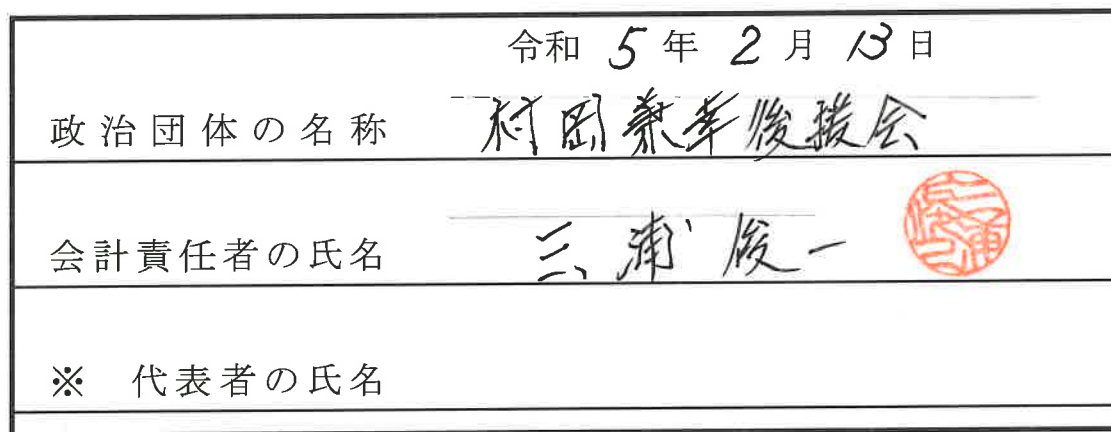 令和 5 年 2 月 13 日
政治団体の名称 村岡兼幸後援会
会計責任者の氏名 三浦俊一
※ 代表者の氏名